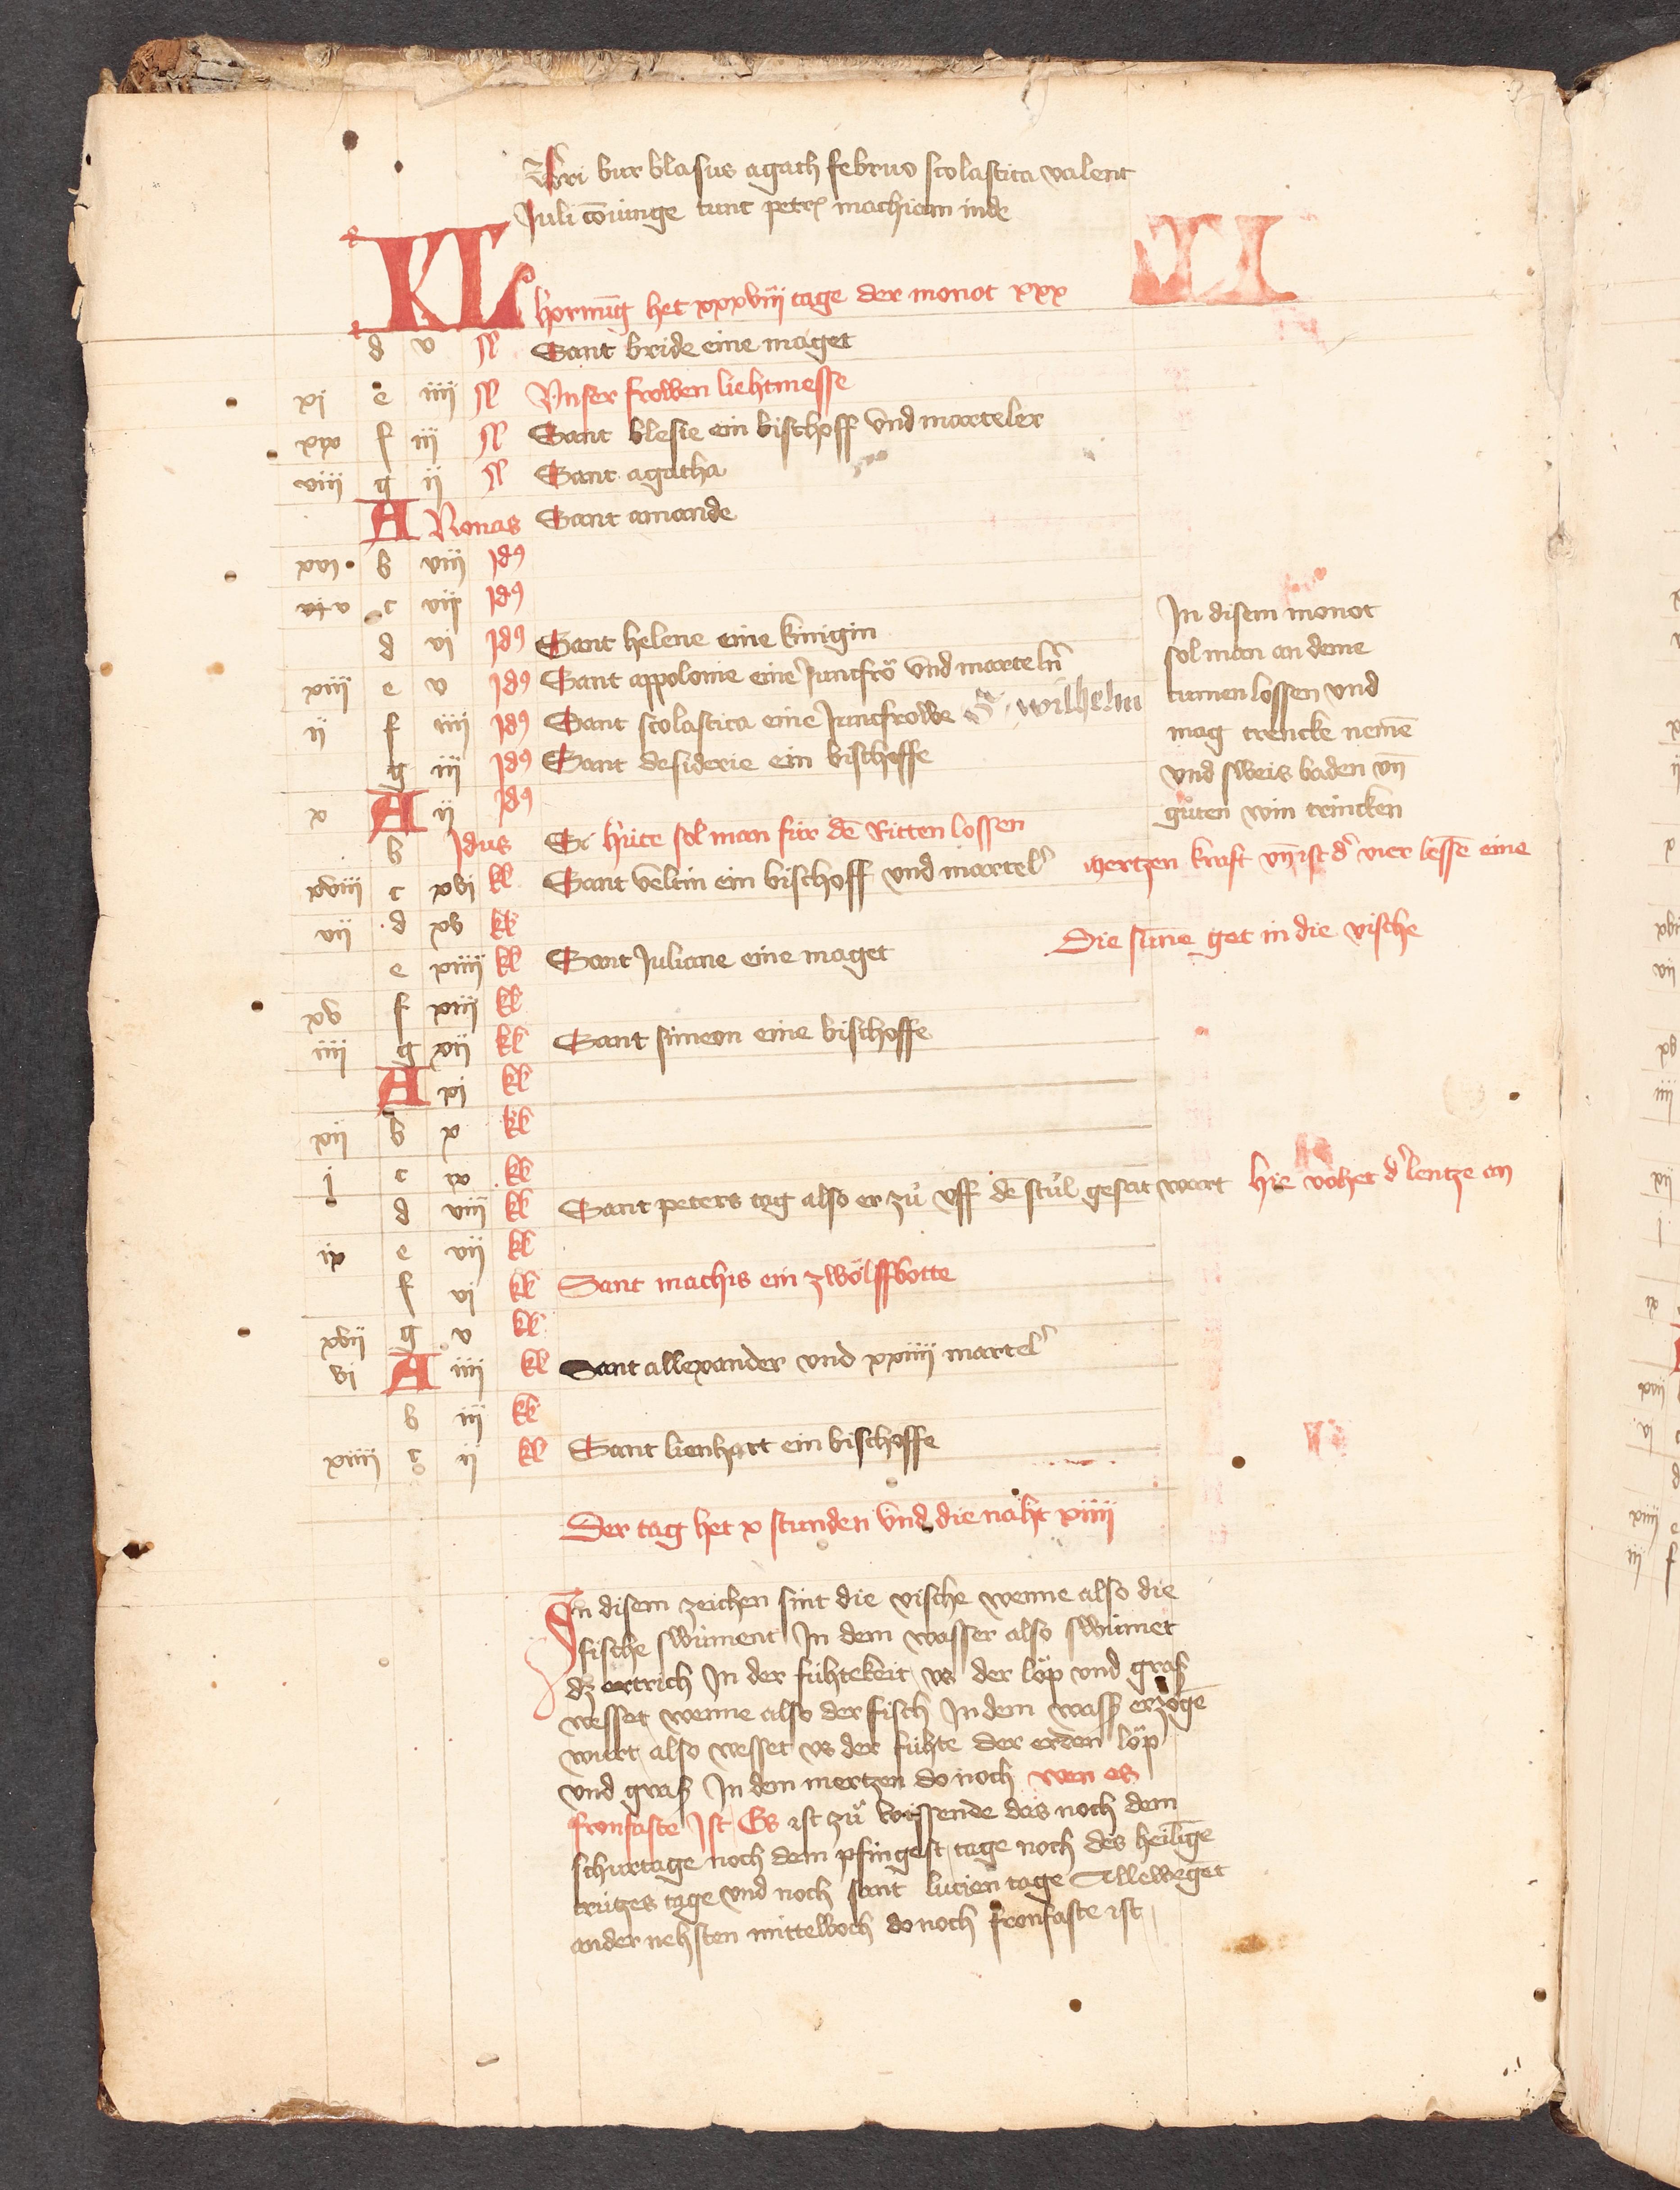 Bri bur blasus agath februo scolastica valent
Juli coniunge tunc petrum mathiam inde
KL hornūg het xxxviij tage der monot xxx
d v N Sant bride eine maget
xj e iiij N Unser frowen liehtmesse
xix f iij N Sant blesie ein bischoff und marteler
viij g ij N Sant agatha
A Nonas Sant amande
xvj b viij Jdꝰ
v c vij Jdꝰ
d vj Jdꝰ Sant helene eine kinigin
xiij e v Jdꝰ Sant appolonie eine Juncfrŏ und martelrn̄
ij f iiij Jdꝰ Sant scolastica eine Juncfrowe S. wilhelm
g iij Jdꝰ Sant desiderie ein bischoffe
x A ij Jdꝰ
b Jdus Hüte sol man für dē Ritten lossen
xviij c xvj kl Sant veltin ein bischoff und martel'
vij d xv kl
e xiiij kl Sant Juliane eine maget
xv f xiij kl
iiij g xij kl Sant simeon eine bischoffe
A xj kl
xij b x kl
j c ix kl
d viij kl Sant peters tag also er zů uff de stůl gesat wart
ix e vij kl
f vj kl Sant mathis ein zwölffbotte
xvij g v kl
vj A iiij kl Sant allexander und xxiiij martel'
b iij kl
xiiij c ij kl Sant lienhart ein bischoffe
In disem monot
sol man an deme
tumen lossen und
mag trencke nemē
und sweis baden un̄
gůten win trincken
mertzen kraft un̄ ist d' vier lessē eine
Die sūne got in die vische
hie vohet d' lentze an
Der tag het x stunden und die naht xiiij
In disem zeichen sint die vische wenne also die
fische swüment In dem wasser also swümet
dz ertrich In der fühtekeit us der löp und graß
wesset wenne also der fisch In dem wasser erzogē
wurt also wesset us der fühte der erden löp
und graß In dem mertzen do noch wen es
fronfaste Ist Es ist zů wissende das noch dem
schurtage noch dem pfingest tage noch des heiligē
crützes tage und noch sant lucien tage Allewegēt
an der nehsten mittelwoch do noch fronfaste ist